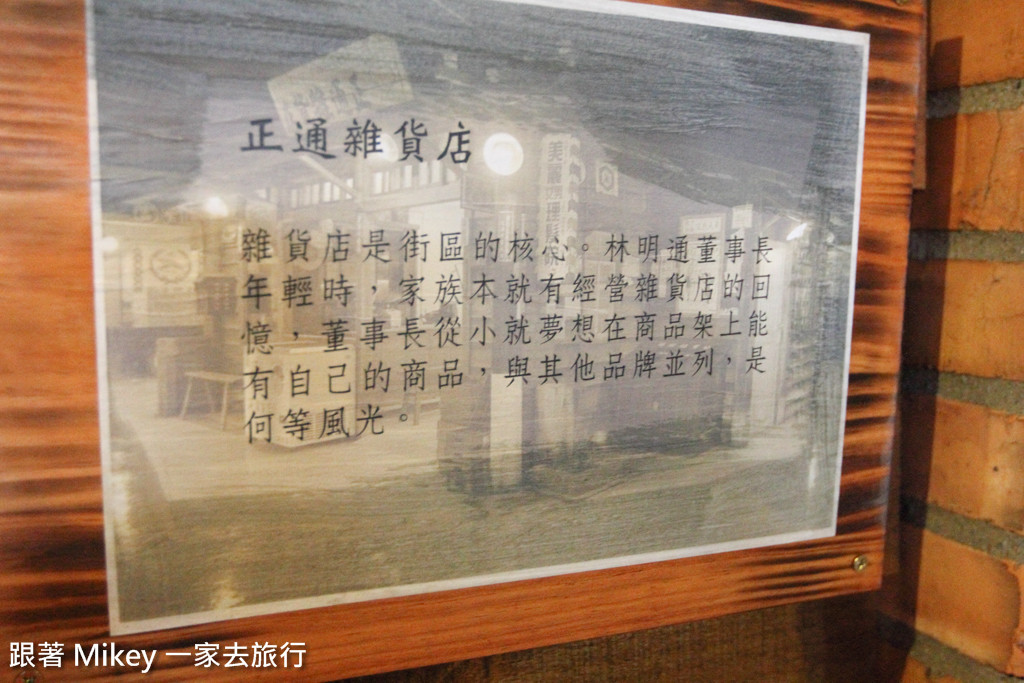 正通雜貨店
雜貨店是街區的核心。林明通董事長
年輕時，家族本就有經營雜貨店的回
憶，董事長從小就夢想在商品架上能
有自己的商品，與其他品牌並列，是
何等風光。
跟著 Mikey 一家去旅行